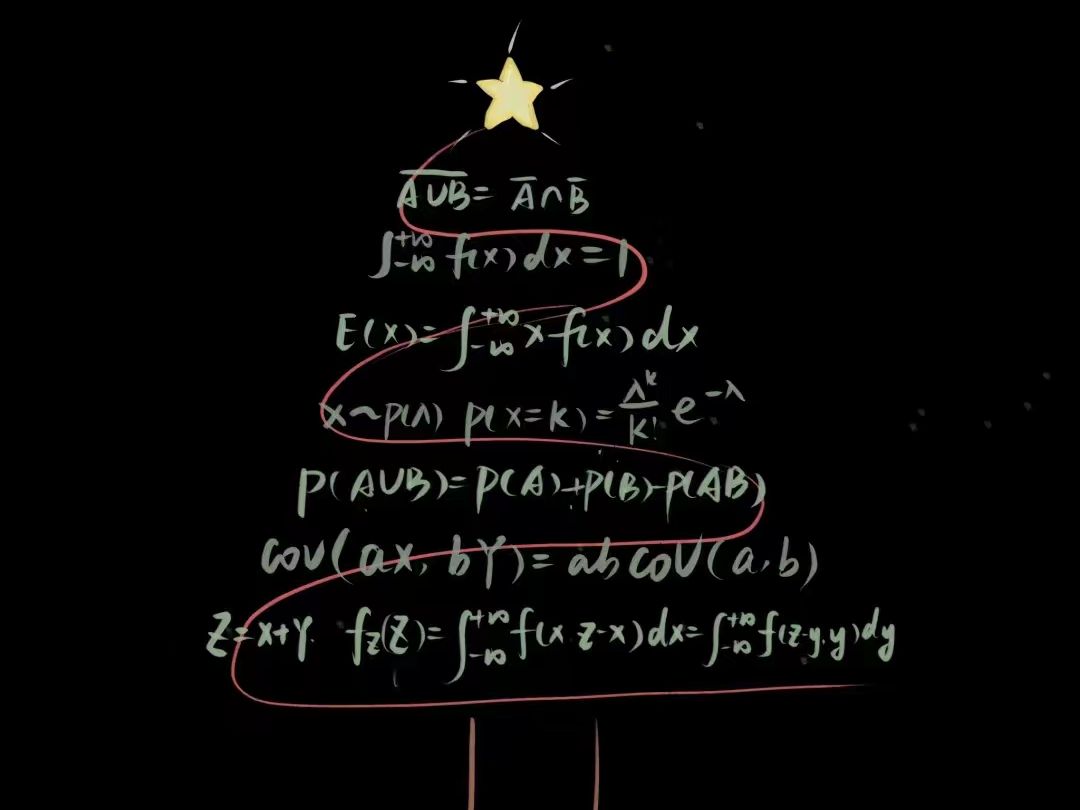 A̅∪̅B̅ = A̅ ∩ B̅
∫₋∞⁺∞ f(x) dx = 1
E(x) = ∫₋∞⁺∞ x f(x) dx
x ~ p(λ) p(x=k) = λᵏ/k! e^(-λ)
P(A∪B) = P(A) + P(B) - P(AB)
cov(ax, bY) = ab cov(a, b)
Z = x+Y. f_Z(Z) = ∫₋∞⁺∞ f(x, z-x) dx = ∫₋∞⁺∞ f(z-y, y) dy